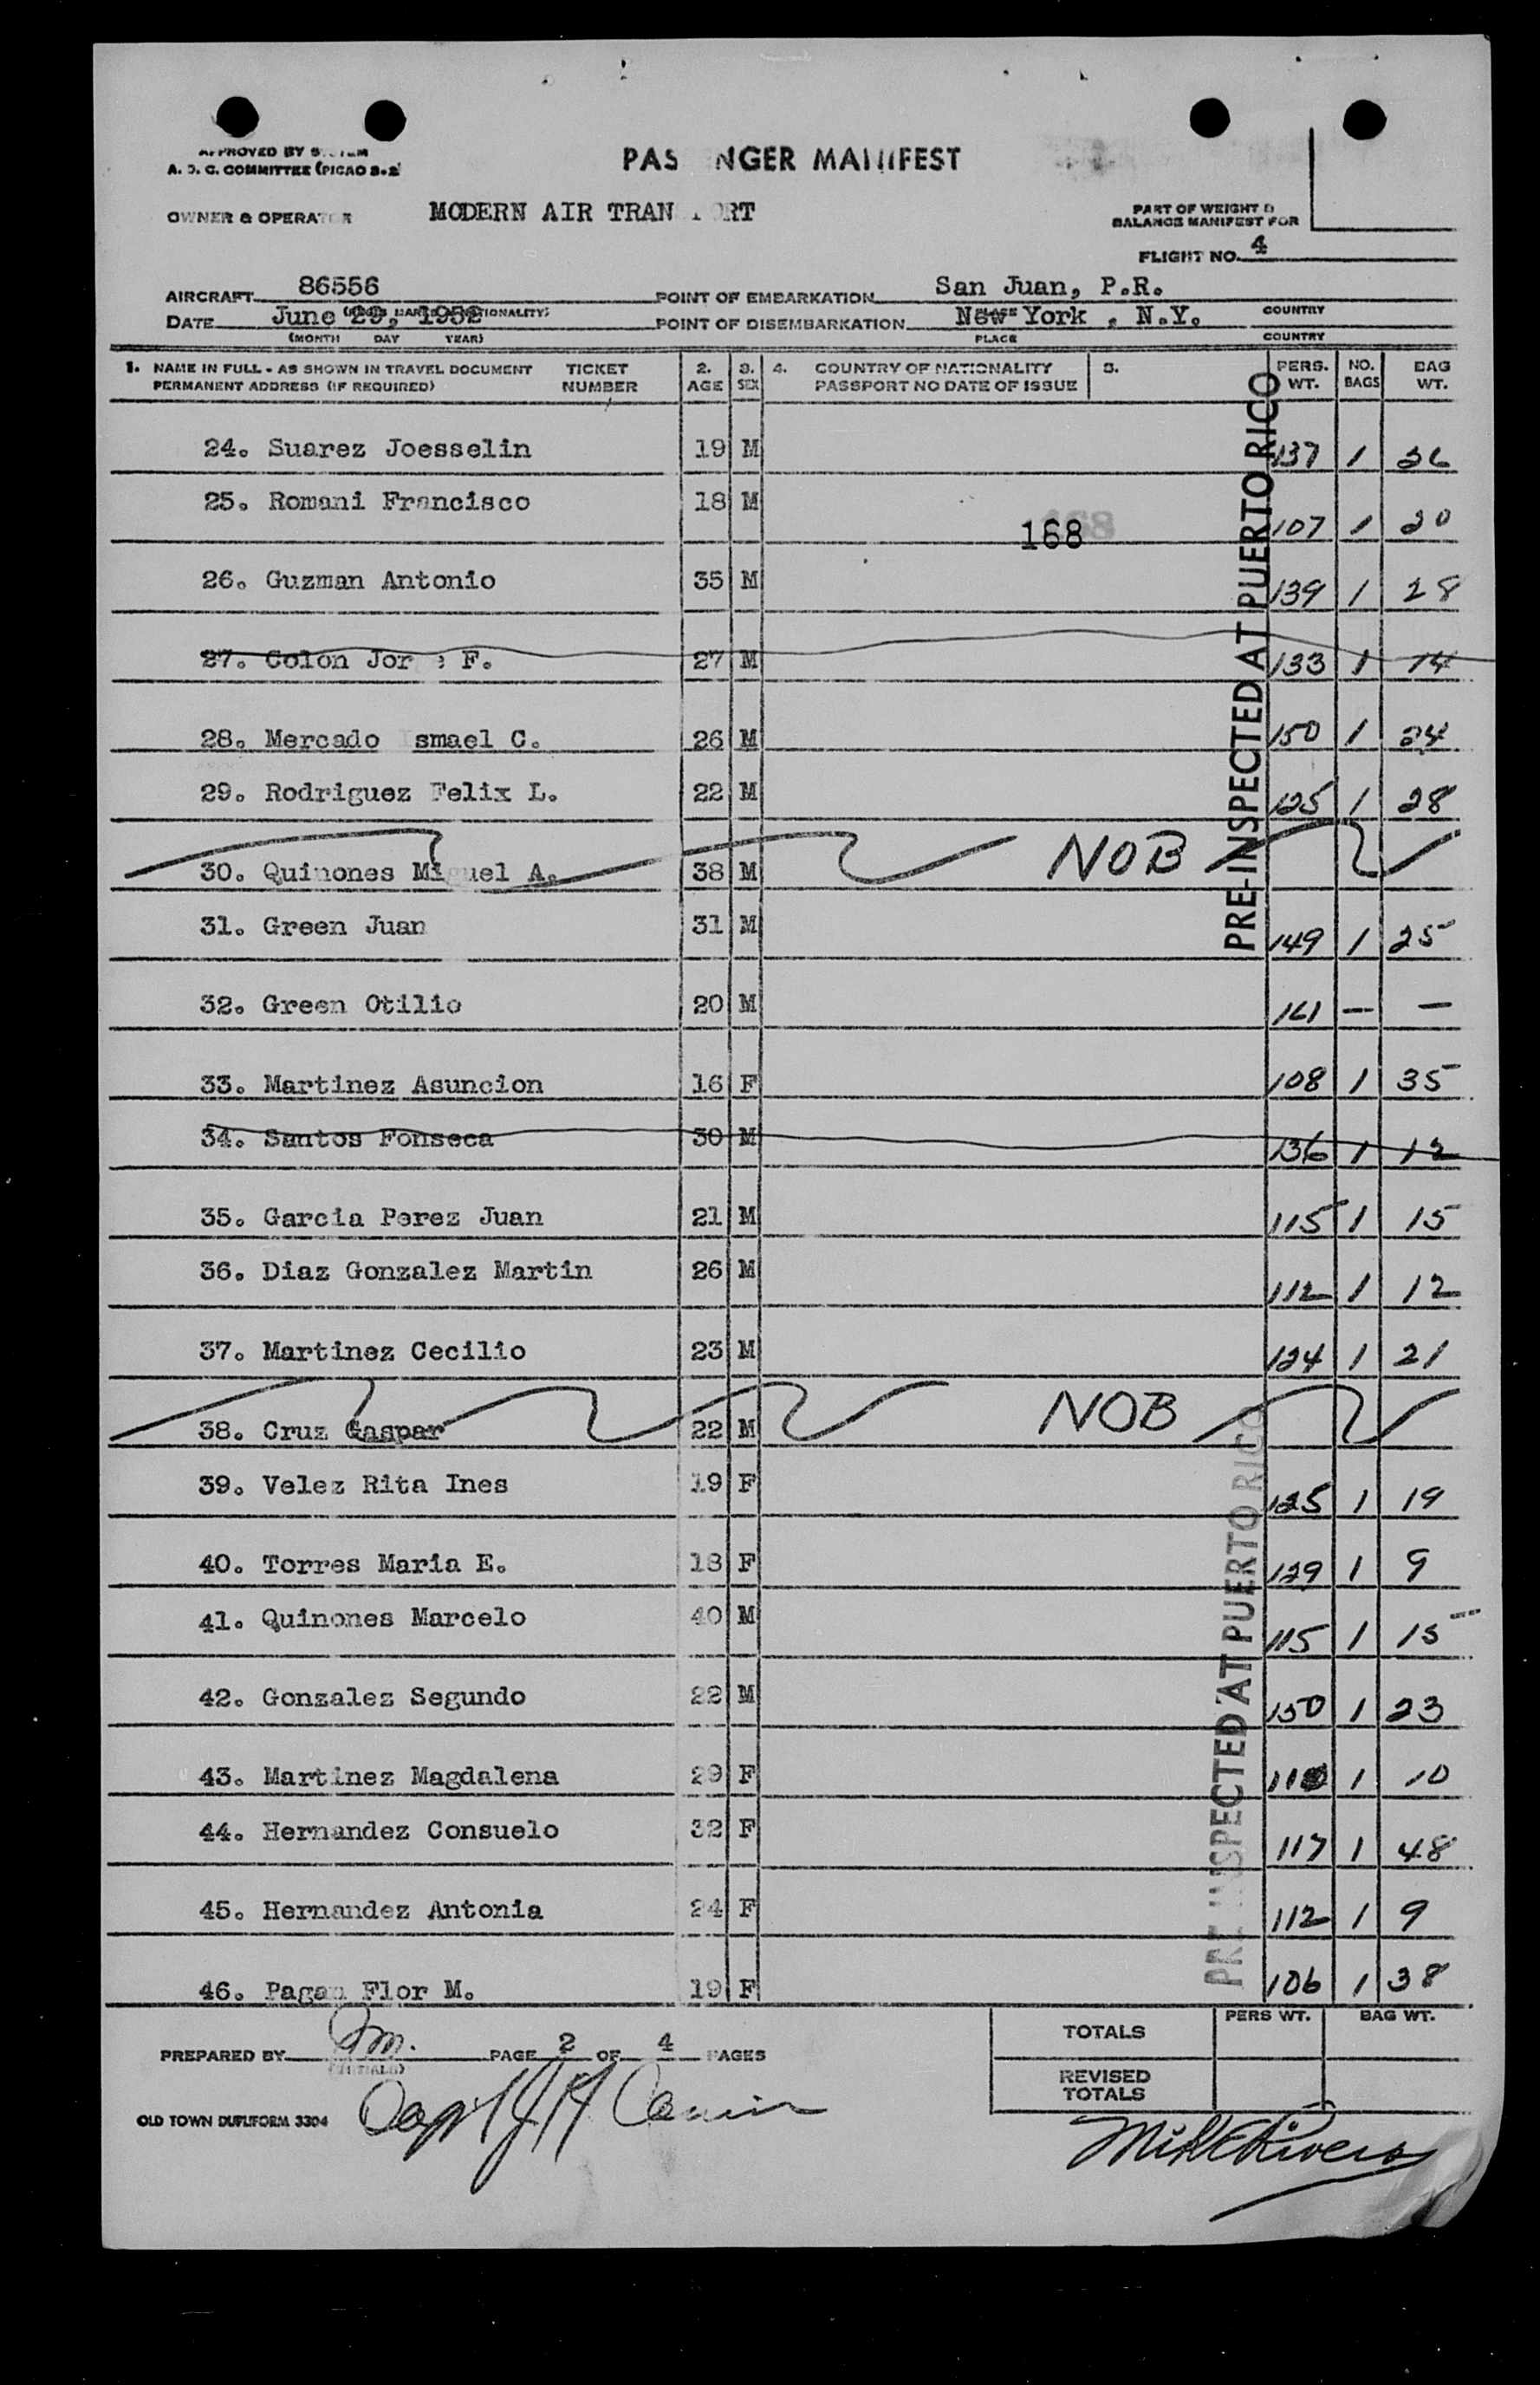 APPROVED BY
A. D. C. COMMITTEE (PICAO
PAS NGER MANIFEST
OWNER & OPERAT R MODERN AIR TRAN RT
PART OF WEIGHT
BALANCE MANIFEST FOR
FLIGHT NO. 4
AIRCRAFT 86556 POINT OF EMBARKATION San Juan, P.R.
DATE June 29, 1952 POINT OF DISEMBARKATION New York , N.Y. COUNTRY
(MONTH DAY YEAR) PLACE COUNTRY
1. NAME IN FULL - AS SHOWN IN TRAVEL DOCUMENT TICKET 2. 3. 4. COUNTRY OF NATIONALITY 5. PERS. NO. BAG
PERMANENT ADDRESS (IF REQUIRED) NUMBER AGE SEX PASSPORT NO DATE OF ISSUE WT. BAGS WT.
24. Suarez Joesselin 19 M 137 1 26
25. Romani Francisco 18 M 107 1 20
168
26. Guzman Antonio 35 M 139 1 28
27. Colon Jor e F. 27 M 133 1 14
28. Mercado smael C. 26 M 150 1 24
29. Rodriguez Felix L. 22 M 125 1 28
30. Quinones Miguel A. 38 M NOB
31. Green Juan 31 M 149 1 25
32. Green Otilio 20 M 161 — —
33. Martinez Asuncion 16 F 108 1 35
34. Santos Fonseca 30 M 136 1 12
35. Garcia Perez Juan 21 M 115 1 15
36. Diaz Gonzalez Martin 26 M 112 1 12
37. Martinez Cecilio 23 M 124 1 21
38. Cruz Gaspar 22 M NOB
39. Velez Rita Ines 19 F 125 1 19
40. Torres Maria E. 18 F 129 1 9
41. Quinones Marcelo 40 M 115 1 15
42. Gonzalez Segundo 22 M 150 1 23
43. Martinez Magdalena 29 F 110 1 10
44. Hernandez Consuelo 32 F 117 1 48
45. Hernandez Antonia 24 F 112 1 9
46. Pagan Flor M. 19 F 106 1 38
PRE-INSPECTED AT PUERTO RICO
PRE-INSPECTED AT PUERTO RICO
PERS WT. BAG WT.
TOTALS
PREPARED BY PAGE 2 OF 4 PAGES
(INITIALS)
REVISED
TOTALS
OLD TOWN DUPLIFORM 3304